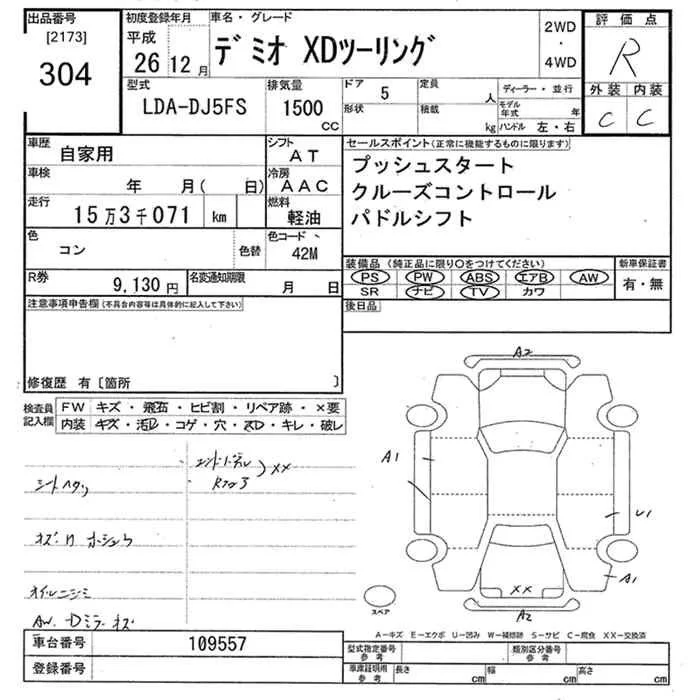 出品番号
[2173]
304
初度登録年月
平成
26 12 月
車名・グレード
デミオ XDツーリング
2WD
・
4WD
評価点
R
外装 内装
C C
型式
LDA-DJ5FS
排気量
1500
cc
ドア 5
形状
定員 人
積載 kg
ディーラー・並行
モデル年式 年
ハンドル 左・右
車歴 自家用
シフト AT
車検 年 月( 日)
冷房 AAC
走行 15万3千071 km
燃料 軽油
色 コン 色替
色コード 42M
R券 9,130 円
名変通知期限 月 日
セールスポイント(正常に機能するものに限ります)
プッシュスタート
クルーズコントロール
パドルシフト
装備品(純正品に限り〇をつけてください)
PS PW ABS エアB AW
SR ナビ TV カワ
新車保証書
有・無
後日品
注意事項申告欄(不具合内容等は具体的に記入して下さい)
修復歴 有〔箇所 〕
検査員記入欄
FW キズ・飛石・ヒビ割・リペア跡・×要
内装 キズ・汚レ・コゲ・穴・スレ・キレ・破レ
XX
A2
A1
U1
A1
XX
A2
スペア
A-キズ E-エクボ U-凹み W-補修跡 S-サビ C-腐食 XX-交換済
車台番号 109557
登録番号
型式指定番号
参考
類別区分番号
参考
車庫証明用
参考
長さ cm 幅 cm 高さ cm